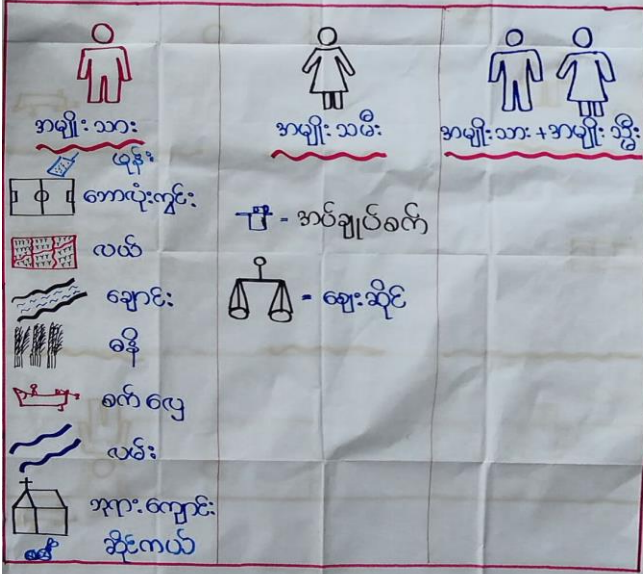 အမျိုးသား
ဖုန်း
ဘောလုံးကွင်း
လယ်
ချောင်း
ဓနိ
စက်လှေ
လမ်း
ဘုရားကျောင်း
ဆိုင်ကယ်
အမျိုးသမီး
- အပ်ချုပ်စက်
- ဈေးဆိုင်
အမျိုးသား + အမျိုးသမီး